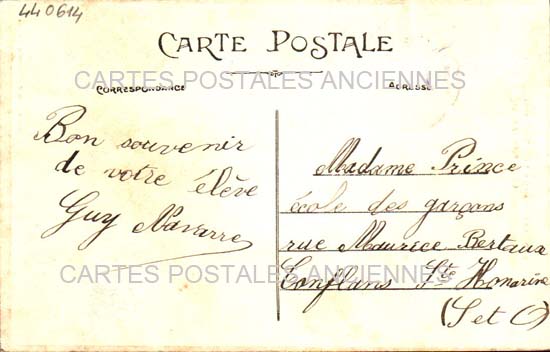 440614
CARTE POSTALE
CARTES POSTALES ANCIENNES
CORRESPONDANCE
ADRESSE
Bon souvenir
de votre élève
Guy Navarre
Madame Prince
école des garçons
rue Maurice Bertaux
Conflans Ste Honorine
(S et O)
CARTES POSTALES ANCIENNES